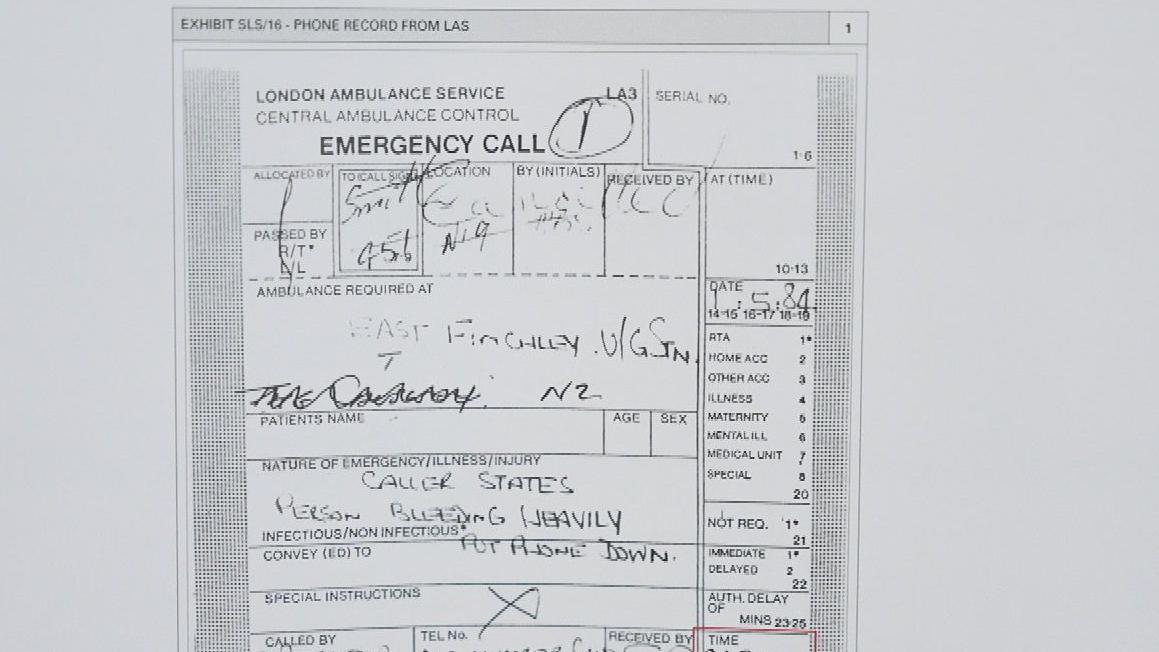 EXHIBIT SLS/16 - PHONE RECORD FROM LAS 1
LONDON AMBULANCE SERVICE
LA3
SERIAL NO.
CENTRAL AMBULANCE CONTROL
EMERGENCY CALL
1
1-6
ALLOCATED BY
TO (CALL SIGN)
LOCATION
BY (INITIALS)
RECEIVED BY
AT (TIME)
N19
PASSED BY
R/T*
L/L
10-13
AMBULANCE REQUIRED AT
DATE
1:5:84
14-15 16-17 18-19
EAST FINCHLEY U/G STN.
N2
RTA 1*
HOME ACC 2
OTHER ACC 3
ILLNESS 4
MATERNITY 5
MENTAL ILL 6
MEDICAL UNIT 7
SPECIAL 8
20
PATIENTS NAME
AGE
SEX
NATURE OF EMERGENCY/ILLNESS/INJURY
CALLER STATES
PERSON BLEEDING HEAVILY
INFECTIOUS/NON INFECTIOUS*
PUT PHONE DOWN.
NOT REQ. 1*
21
CONVEY (ED) TO
IMMEDIATE 1*
DELAYED 2
22
SPECIAL INSTRUCTIONS
AUTH. DELAY
OF
MINS 23-25
CALLED BY
TEL No.
RECEIVED BY
TIME